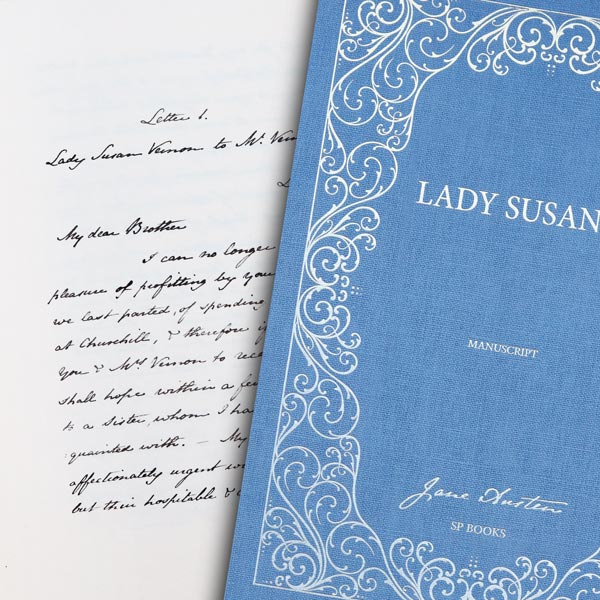 Letter 1.
Lady Susan Vernon to Mr. Vern
My dear Brother
I can no longer
pleasure of profitting by your
we last parted, of spending
at Churchill, & therefore if
you & Mrs Vernon to rece
shall hope within a few
to a Sister, whom I ha
quainted with. — My
affectionately urgent w
but their hospitable &
LADY SUSAN
MANUSCRIPT
Jane Austen
SP BOOKS